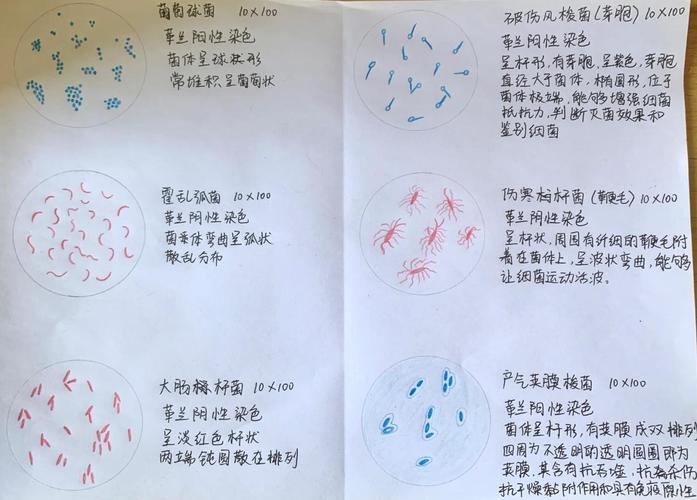 葡萄球菌 10×100
革兰阳性染色
菌体呈球状形
常堆积呈葡萄状
霍乱弧菌 10×100
革兰阴性染色
菌体弯曲呈弧状
散乱分布
大肠杆菌 10×100
革兰阴性染色
呈淡红色杆状
两端钝圆散在排列
破伤风梭菌(芽胞) 10×100
革兰阳性染色
呈杆形,有芽胞,呈紫色,芽胞
直径大于菌体,椭圆形,位于
菌体极端,能够增强细菌
抵抗力,判断灭菌效果和
鉴别细菌
伤寒杆菌(鞭毛) 10×100
革兰阴性染色
呈杆状,周围有纤细的鞭毛附
着在菌体上,呈波状弯曲,能够
让细菌运动活波。
产气荚膜梭菌 10×100
革兰阳性染色
菌体呈杆形,有荚膜成双排列
四周为不透明的透明圆圈即为
荚膜,其含有抗吞噬,抗
抗干燥黏附作用和具有免疫原性